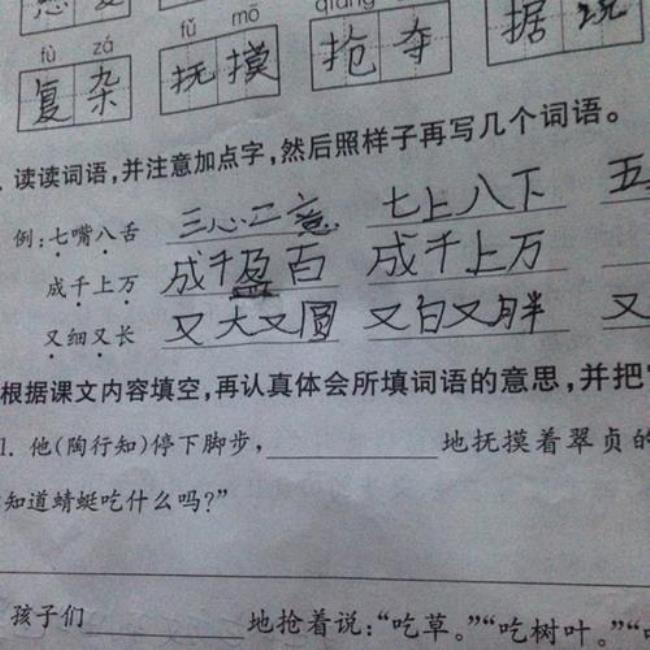 fù zá fǔ mō qiāng
复杂 抚摸 抢夺 据说
读读词语,并注意加点字,然后照样子再写几个词语。
例:七嘴八舌 三心二意 七上八下 五
成千上万 成千盈百 成千上万
又细又长 又大又圆 又白又胖 又
根据课文内容填空,再认真体会所填词语的意思,并把
1. 他(陶行知)停下脚步, 地抚摸着翠贞的
知道蜻蜓吃什么吗?”
孩子们 地抢着说:“吃草。”“吃树叶。”“